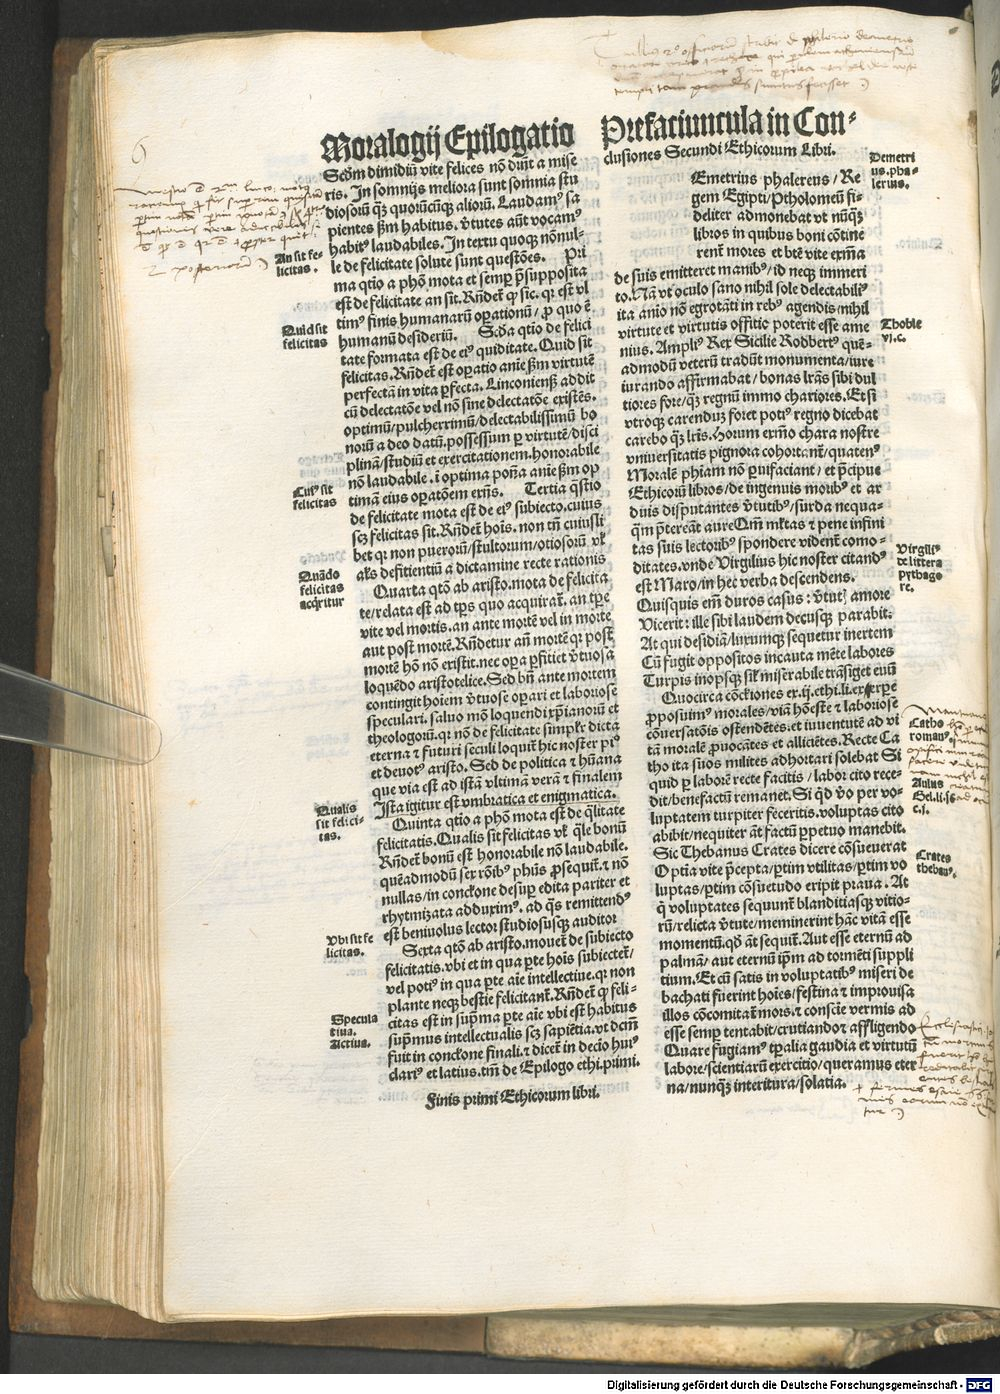 Moralogij Epilogatio
Scd̄m dimidiū vite felices nō dn̄t a mise
ris. In somnijs meliora sunt somnia stu
diosorū q̄ꝫ quorūcūqꝫ aliorū. Laudamꝰ sa
pientes ẜm habitus. v̄tutes aūt vocamꝰ
habitꝰ laudabiles. In textu quoqꝫ nōnul-
le de felicitate solute sunt questōes. Pri
ma q̄tio a ph̄o mota et semꝑ p̄supposita
est de felicitate an sit. Rn̄deƭ ꝙ sic. qꝛ est vl
timꝰ finis humanarū oꝑationū / ꝓ quo ē
humanū desideriū. Scd̄a q̄tio de felici
tate formata est de eiꝰ quiditate. Quid sit
felicitas. Rn̄deƭ est oꝑatio anīe ẜm virtutē
perfectā in vita ꝑfecta. Linconienẜ addit
cū delectatōe vel nō sine delectatōe existēs.
optimū / pulcherrimū / delectabilissimū bo
norū a deo datū. possessum ꝑ virtutē / disci
plinā / studiū et exercitationem. honorabile
nō laudabile. ī optima pon̄a anīe ẜm op
timā eius oꝑatōem exn̄s. Tertia q̄stio
de felicitate mota est de eiꝰ subiecto. cuius
scꝫ felicitas sit. Rn̄deƭ hoīs. non tn̄ cuiusli
bet qꝛ non puerorū / stultorum / otiosorū vƚ
alƚs defitientiū a dictamine recte rationis
Quarta q̄tō ab aristo. mota de felicita
te / relata est ad tp̄s quo acquiraƭ. an tp̄e
vite vel mortis. an ante mortē vel in morte
aut post mortē. Rn̄detur an̄ mortē qꝛ post
mortē hō nō existit. nec oꝑa ꝑfitieƭ v̄tuosa
loquēdo aristotelice. Sed bn̄ ante mortem
contingit hoīem v̄tuose oꝑari et laboriose
speculari. saluo mō loquendi xp̄ianorū et
theologorū. qꝛ nō de felicitate simplƚr dicta
eterna ⁊ futuri seculi loquiƭ hic noster piꝰ
et deuotꝰ aristo. Sed de politica ⁊ hūana
que via est ad istā vltimā verā ⁊ finalem
Ista igitur est vmbratica et enigmatica.
Quinta q̄tio a ph̄o mota est de q̄litate
felicitatis. Qualis sit felicitas vƚ q̄le bonū
Rn̄deƭ bonū est honorabile nō laudabile.
quēadmodū seꝝ rōibꝰ ph̄us ꝓsequiƭ. ⁊ nō
nullas / in conckone desuꝑ edita pariter et
rhytmizata adduximꝰ. ad q̄s remittendꝰ
est beniuolus lector studiosusqꝫ auditor
Sexta q̄tō ab aristo. moueƭ de subiecto
felicitatis. vbi et in qua ꝑte hoīs subiecteƭ /
vel potiꝰ in qua ꝑte aīe intellectiue. qꝛ non
plante neqꝫ bestie felicitanƭ. Rn̄deƭ ꝙ feli-
citas est in sup̄ma ꝑte aīe vbi est habitus
sup̄mus intellectualis scꝫ sapiētia. vt dcm̄
fuit in conckone finali. ⁊ diceƭ in decio huiꝰ
clariꝰ et latius. tm̄ de Epilogo ethi. primi.
Finis primi Ethicorum libri.
An sit fe
licitas.
Quid sit
felicitas
Cuiꝰ sit
felicitas
Quādo
felicitas
acq̄ritur
Qualis
sit felici-
tas.
Vbi sit fe
licitas.
Specula
tiua.
Actiua.
Prefaciuncula in Con-
clusiones Secundi Ethicorum Libri.
Emetrius phalereus / Re
gem Egipti / Ptholomeū fi-
deliter admonebat vt nūq̄ꝫ
libros in quibus boni cōtine
renƭ mores et btē vite exm̄a
de suis emitteret manibꝰ / id neqꝫ immeri
to. Nā vt oculo sano nihil sole delectabiliꝰ
ita anīo nō egrotāti in rebꝰ agendis / nihil
virtute et virtutis offitio poterit esse ame
nius. Ampliꝰ Rex Sicilie Rodbertꝰ quē-
admodū veterū tradūt monumenta / iure
iurando affirmabat / bonas lr̄as sibi dul
tiores fore / q̄ꝫ regnū immo chariores. Et si
vtroqꝫ carenduꝫ foret potiꝰ regno dicebat
carebo q̄ꝫ lr̄is. Horum exm̄o chara nostre
vniuersitatis pignora cohortanƭ / quatenꝰ
Moralē ph̄iam nō ꝑuifaciant / et p̄cipue
Ethicorū libros / de ingenuis moribꝰ et ar
duis disputantes v̄tutibꝰ / surda nequa-
q̄m p̄tereāt aure Qm̄ mƚtas ⁊ pene infini
tas suis lectoribꝰ spondere videnƭ como-
ditates. vnde Virgilius hic noster citandꝰ
est Maro / in hec verba descendens.
Quisquis em̄ duros casus: v̄tuƭ amore
Vicerit: ille sibi laudem decusqꝫ parabit.
At qui desidiā / luxumqꝫ sequetur inertem
Cū fugit oppositos incauta mēte labores
Turpis inopsqꝫ siƚ miserabile trāsiget euū
Quocirca cōckiones ex .ij. ethi. li. exꝑꝑē
ꝓposuimꝰ morales / viā hōeste ⁊ laboriose
cōuersatōis ostendētes. et iuuentutē ad vi
tā moralē ꝓuocātes et allicietes. Recte Ca
tho ita suos milites adhortari solebat Si
quid ꝑ laborē recte facitis / labor cito rece-
dit / benefactū remanet. Si q̄d v̄o per vo-
luptatem turpiter feceritis. voluptas cito
abibit / nequiter āt factū ꝑpetuo manebit.
Sic Thebanus Crates dicere cōsueuerat
Optīa vite p̄cepta / ꝑtim vtilitas / ꝑtim vo
luptas / ꝑtim cōsuetudo eripit praua. At
q̄ voluptates sequunƭ blanditiasqꝫ vitio-
rū / relicta v̄tute / meminerint hāc vitā esse
momentū. qd̄ āt sequiƭ. Aut esse eternū ad
palmā / aut eternū ip̄m ad tormēti suppli
tium. Et cū satis in voluptatibꝰ miseri de
bachati fuerint hoīes / festina ⁊ improuisa
illos cōcomitaƭ mors. ⁊ conscīe vermis ad
esse semꝑ tentabit / crutiandoƺ affligendo
Quare fugiamꝰ tꝑalia gaudia et virtutū
labore / scientiarū exercitio / queramus eter
na / nunq̄ꝫ interitura / solatia.
Demetri
us. pha-
lerius.
Thoble
vj. c.
Virgiliꝰ
de littera
pythago
re.
Catho
romanꝰ
Aulus
Gel. li. 16
c. j.
Crates
thebanꝰ.
Digitalisierung gefördert durch die Deutsche Forschungsgemeinschaft - DFG